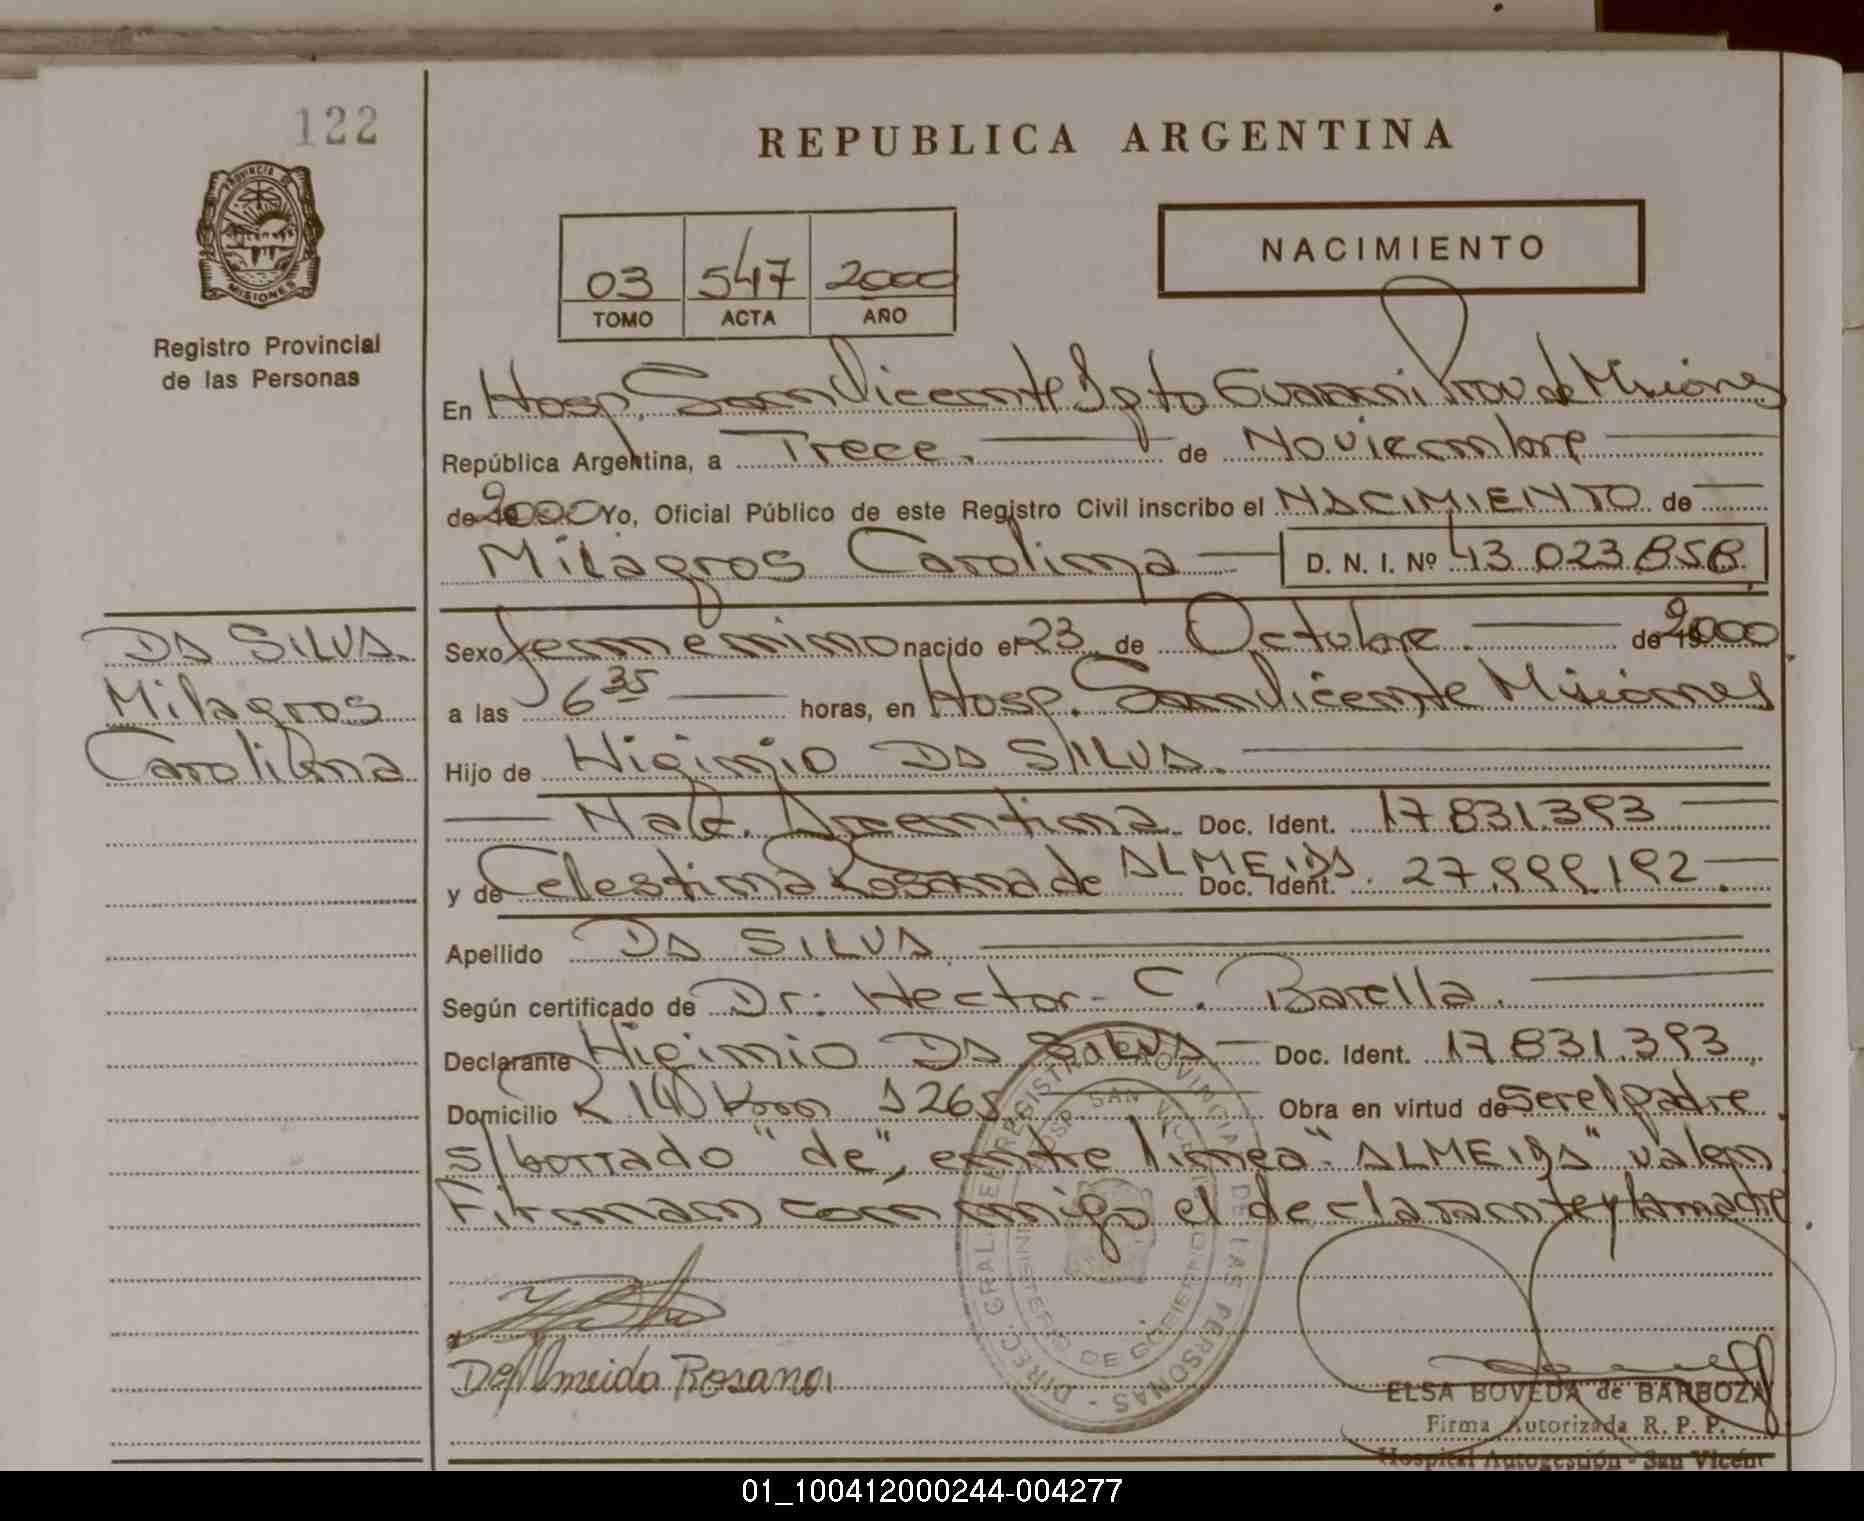 122
REPUBLICA ARGENTINA
PROVINCIA DE
MISIONES
Registro Provincial
de las Personas
03 547 2000
TOMO ACTA AÑO
NACIMIENTO
En Hosp. San Vicente Dpto Guarani Prov de Misiones
República Argentina, a Trece. de Noviembre
de 2000 Yo, Oficial Público de este Registro Civil inscribo el NACIMIENTO de
Milagros Carolina D. N. I. Nº 43.023.858
DA SILVA
Milagros
Carolina
Sexo femenino nacido el 23 de Octubre de 2000
a las 6 35 horas, en Hosp. San Vicente Misiones
Hijo de Higinio DA SILVA.
Nac. Argentina Doc. Ident. 17.831.393
y de Celestina Rosana de ALMEIDA Doc. Ident. 27.999.192
Apellido DA SILVA
Según certificado de Dr: Hector C. Barella.
Declarante Higinio DA SILVA Doc. Ident. 17.831.393
Domicilio R 14 Km 1265 Obra en virtud de Ser el padre.
s/borrado "de", entre linea "ALMEIDA" valen.
Firman conmigo el declarante y la madre.
De Almeida Rosana
DIREC. GRAL. DEL REGISTRO PROVINCIAL DE LAS PERSONAS
HOSP SAN VICENTE
MINISTERIO DE GOBIERNO
ELSA BOVEDA de BARBOZA
Firma Autorizada R. P. P.
Hospital Autogestión - San Vicent
01_100412000244-004277